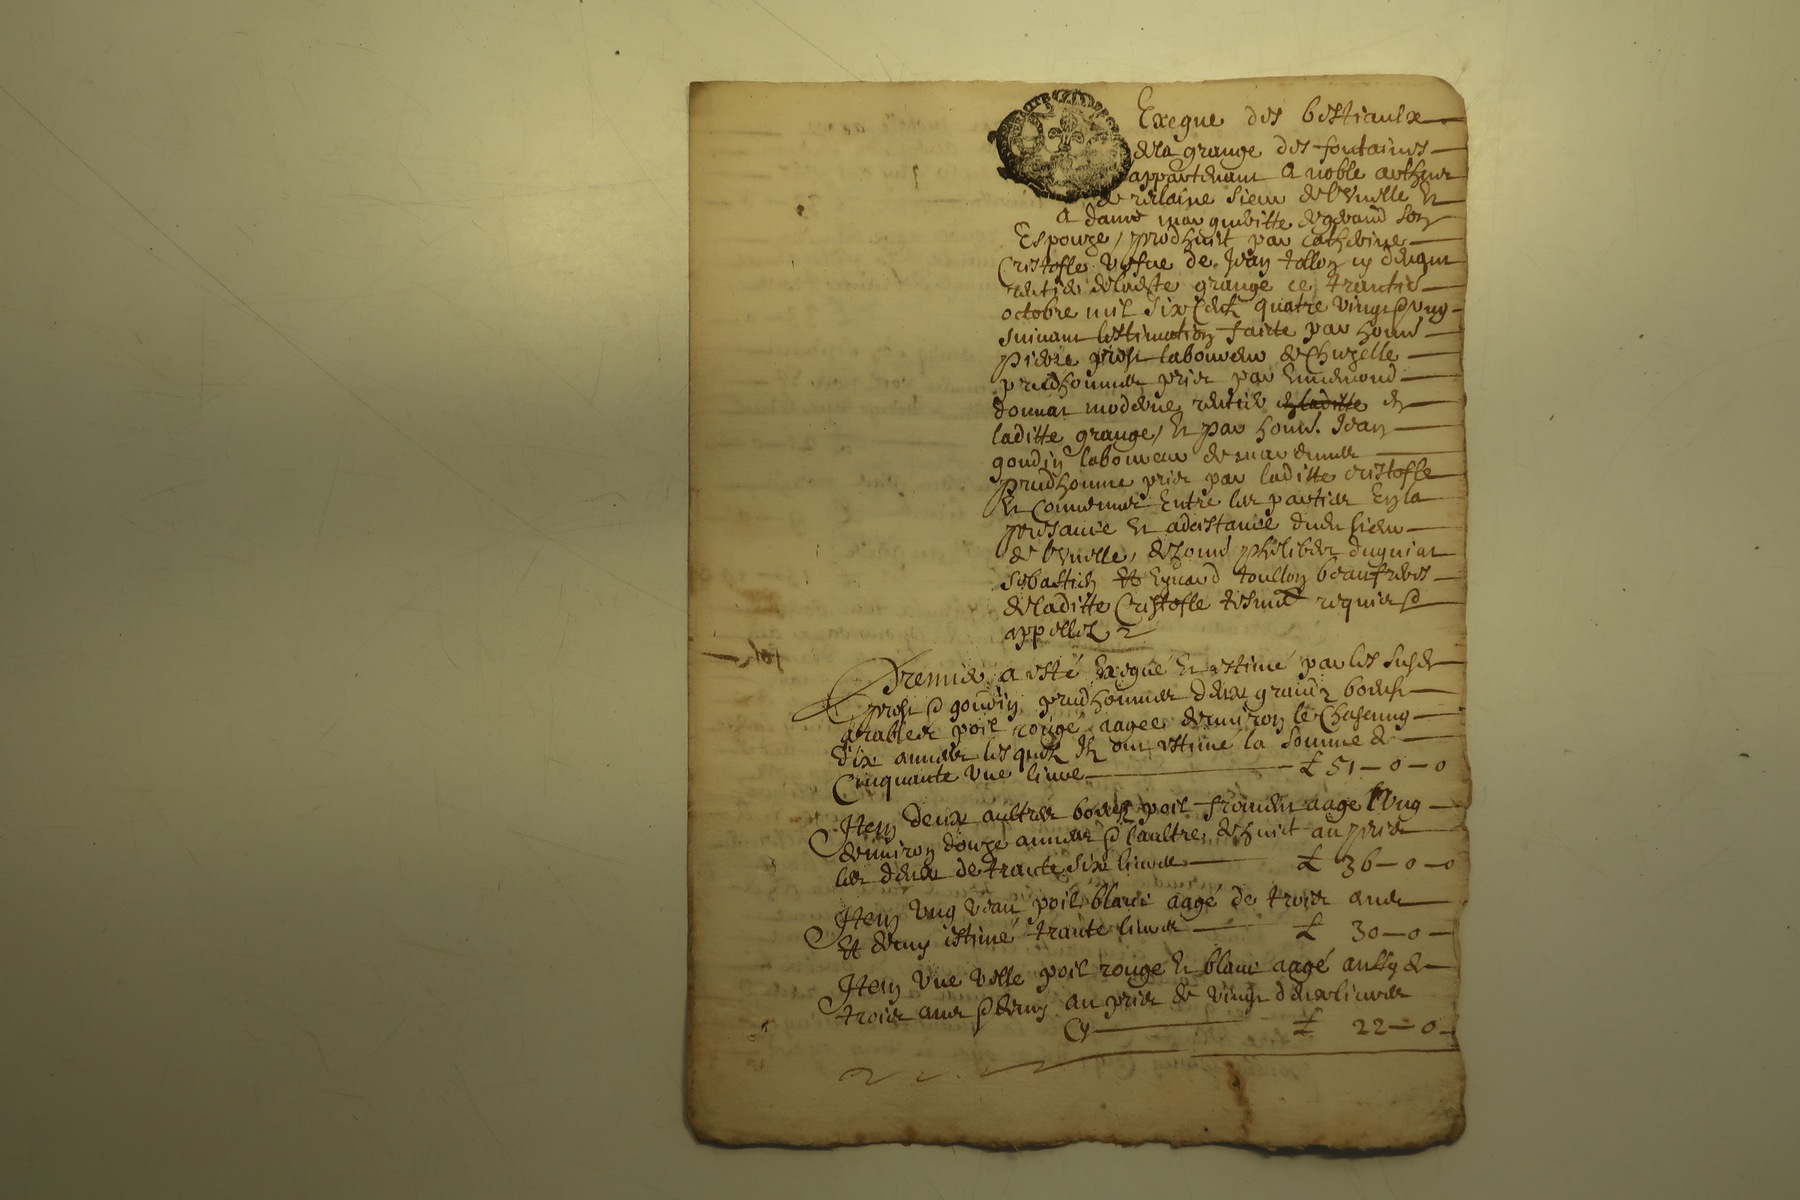 Exegue des bestiaulx
de la grange des fontaines
appartenant a noble arthur
de relaine sieur de
a dame margueritte son
Espouze, prodhuit par catherine
Cristofle vefve de Jean tollon
rentier de ladite grange ce trantie
octobre mil six cent quatre vingt & ung
suivant lestimation faicte par hono
pierre prost laboureur de Chuzelle
prudhomme pris par Ennemond
donnat moderne rentier de
laditte grange, et par hono. Jean
goudin laboureur de
prudhomme pris par laditte cristofle
et Convenus Entre les parties En la
presance et adcistance dudit sieur
de philiber duquiat
sebastien et toullon beaufreres
de laditte Cristofle tesmo requis &
appelles
Premier a esté Exegué et estimé par les susdt
prost & goudin prudhommes deux grandz boeufz
arables poil rouge aages denviron le Chascung
dix annees lesquelz Ilz ont estimé la somme de
Cinquante une livre £ 51—0—0
Item deux aultres boeufz poil froment aagé lung
denviron douze annees & laultre de huict au pris
les deux de trante six livres £ 36—0—0
Item ung veau poil blanc aagé de trois ans
et demy estimé trante livres £ 30—0—
Item une velle poil rouge et blanc aagé aussy de
trois ans & demy au pris de vingt deux livres
Cy £ 22—0—